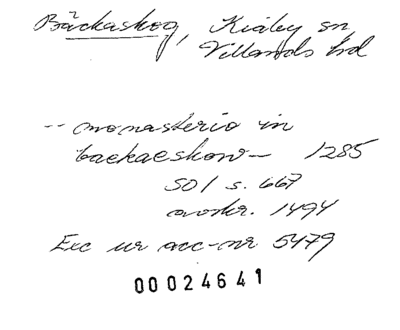 Bäckaskog, Kiaby sn
Villands hd
-- monasterio in
baekaeskow – 1285
SD 1 s. 667
avskr. 1494
Exc ur acc-nr 5479
00024641